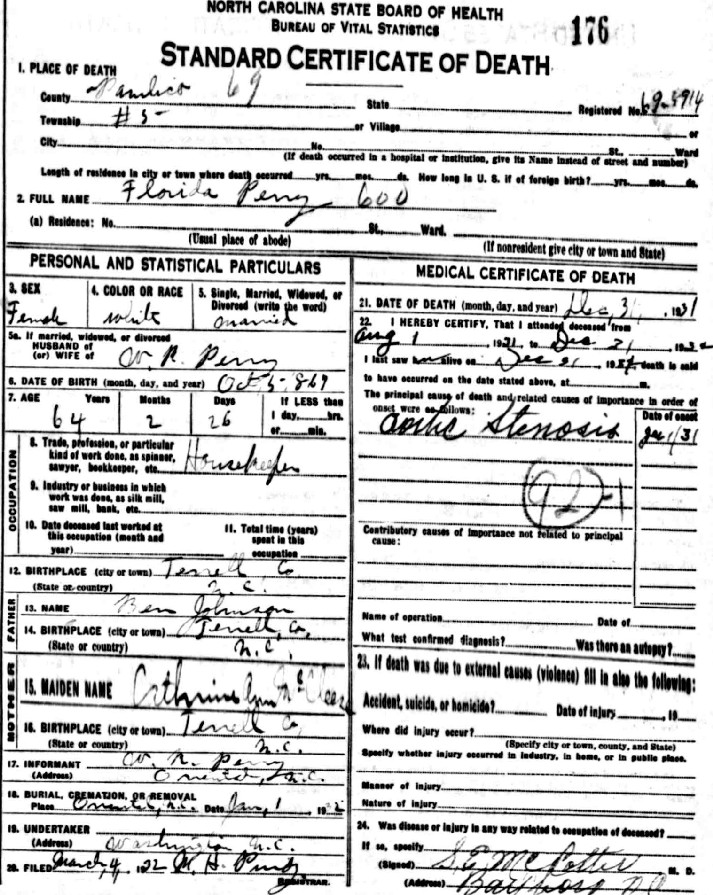 NORTH CAROLINA STATE BOARD OF HEALTH
BUREAU OF VITAL STATISTICS
176
STANDARD CERTIFICATE OF DEATH
1. PLACE OF DEATH
County Pamlico 69 State Registered No. 69-5914
Township #5- or Village or
City No. St., Ward
(If death occurred in a hospital or institution, give its Name instead of street and number)
Length of residence in city or town where death occurred yrs. mos. ds. How long in U. S. if of foreign birth? yrs. mos. ds.
2. FULL NAME Florida Perry 600
(a) Residence: No. St., Ward.
(Usual place of abode) (If nonresident give city or town and State)
PERSONAL AND STATISTICAL PARTICULARS
3. SEX 4. COLOR OR RACE 5. Single, Married, Widowed, or
Divorced (write the word)
Female white married
5a. If married, widowed, or divorced
HUSBAND of
(or) WIFE of W. R. Perry
6. DATE OF BIRTH (month, day, and year) Oct 5- 1867
7. AGE Years Months Days If LESS than
1 day, hrs.
64 2 26 or min.
OCCUPATION
8. Trade, profession, or particular
kind of work done, as spinner,
sawyer, bookkeeper, etc. Housekeeper
9. Industry or business in which
work was done, as silk mill,
saw mill, bank, etc.
10. Date deceased last worked at
this occupation (month and
year)
11. Total time (years)
spent in this
occupation
12. BIRTHPLACE (city or town) Terrell Co
(State or country) N.C.
FATHER
13. NAME Ben Johnson
14. BIRTHPLACE (city or town) Terrell, Co,
(State or country) N.C.
MOTHER
15. MAIDEN NAME Cathrine Ann
16. BIRTHPLACE (city or town) Terrell Co,
(State or country) N.C.
17. INFORMANT W. R. Perry
(Address) Oriental, N.C.
18. BURIAL, CREMATION, OR REMOVAL
Place Oriental, N.C. Date Jan, 1 1932
19. UNDERTAKER
(Address) Washington N.C.
20. FILED March, 4, 132 M. H.
REGISTRAR.
MEDICAL CERTIFICATE OF DEATH
21. DATE OF DEATH (month, day, and year) Dec, 31, 1931
22. I HEREBY CERTIFY, That I attended deceased from
Aug 1, 1931, to Dec 21, 19
I last saw alive on Dec 21, 19 death is said
to have occurred on the date stated above, at m.
The principal cause of death and related causes of importance in order of
onset were as follows: Date of onset
Aortic Stenosis /31
92-1
Contributory causes of importance not related to principal
cause:
Name of operation Date of
What test confirmed diagnosis? Was there an autopsy?
23. If death was due to external causes (violence) fill in also the following:
Accident, suicide, or homicide? Date of injury , 19
Where did injury occur?
(Specify city or town, county, and State)
Specify whether injury occurred in industry, in home, or in public place.
Manner of injury
Nature of injury
24. Was disease or injury in any way related to occupation of deceased?
If so, specify
(Signed) M. D.
(Address) N.C.